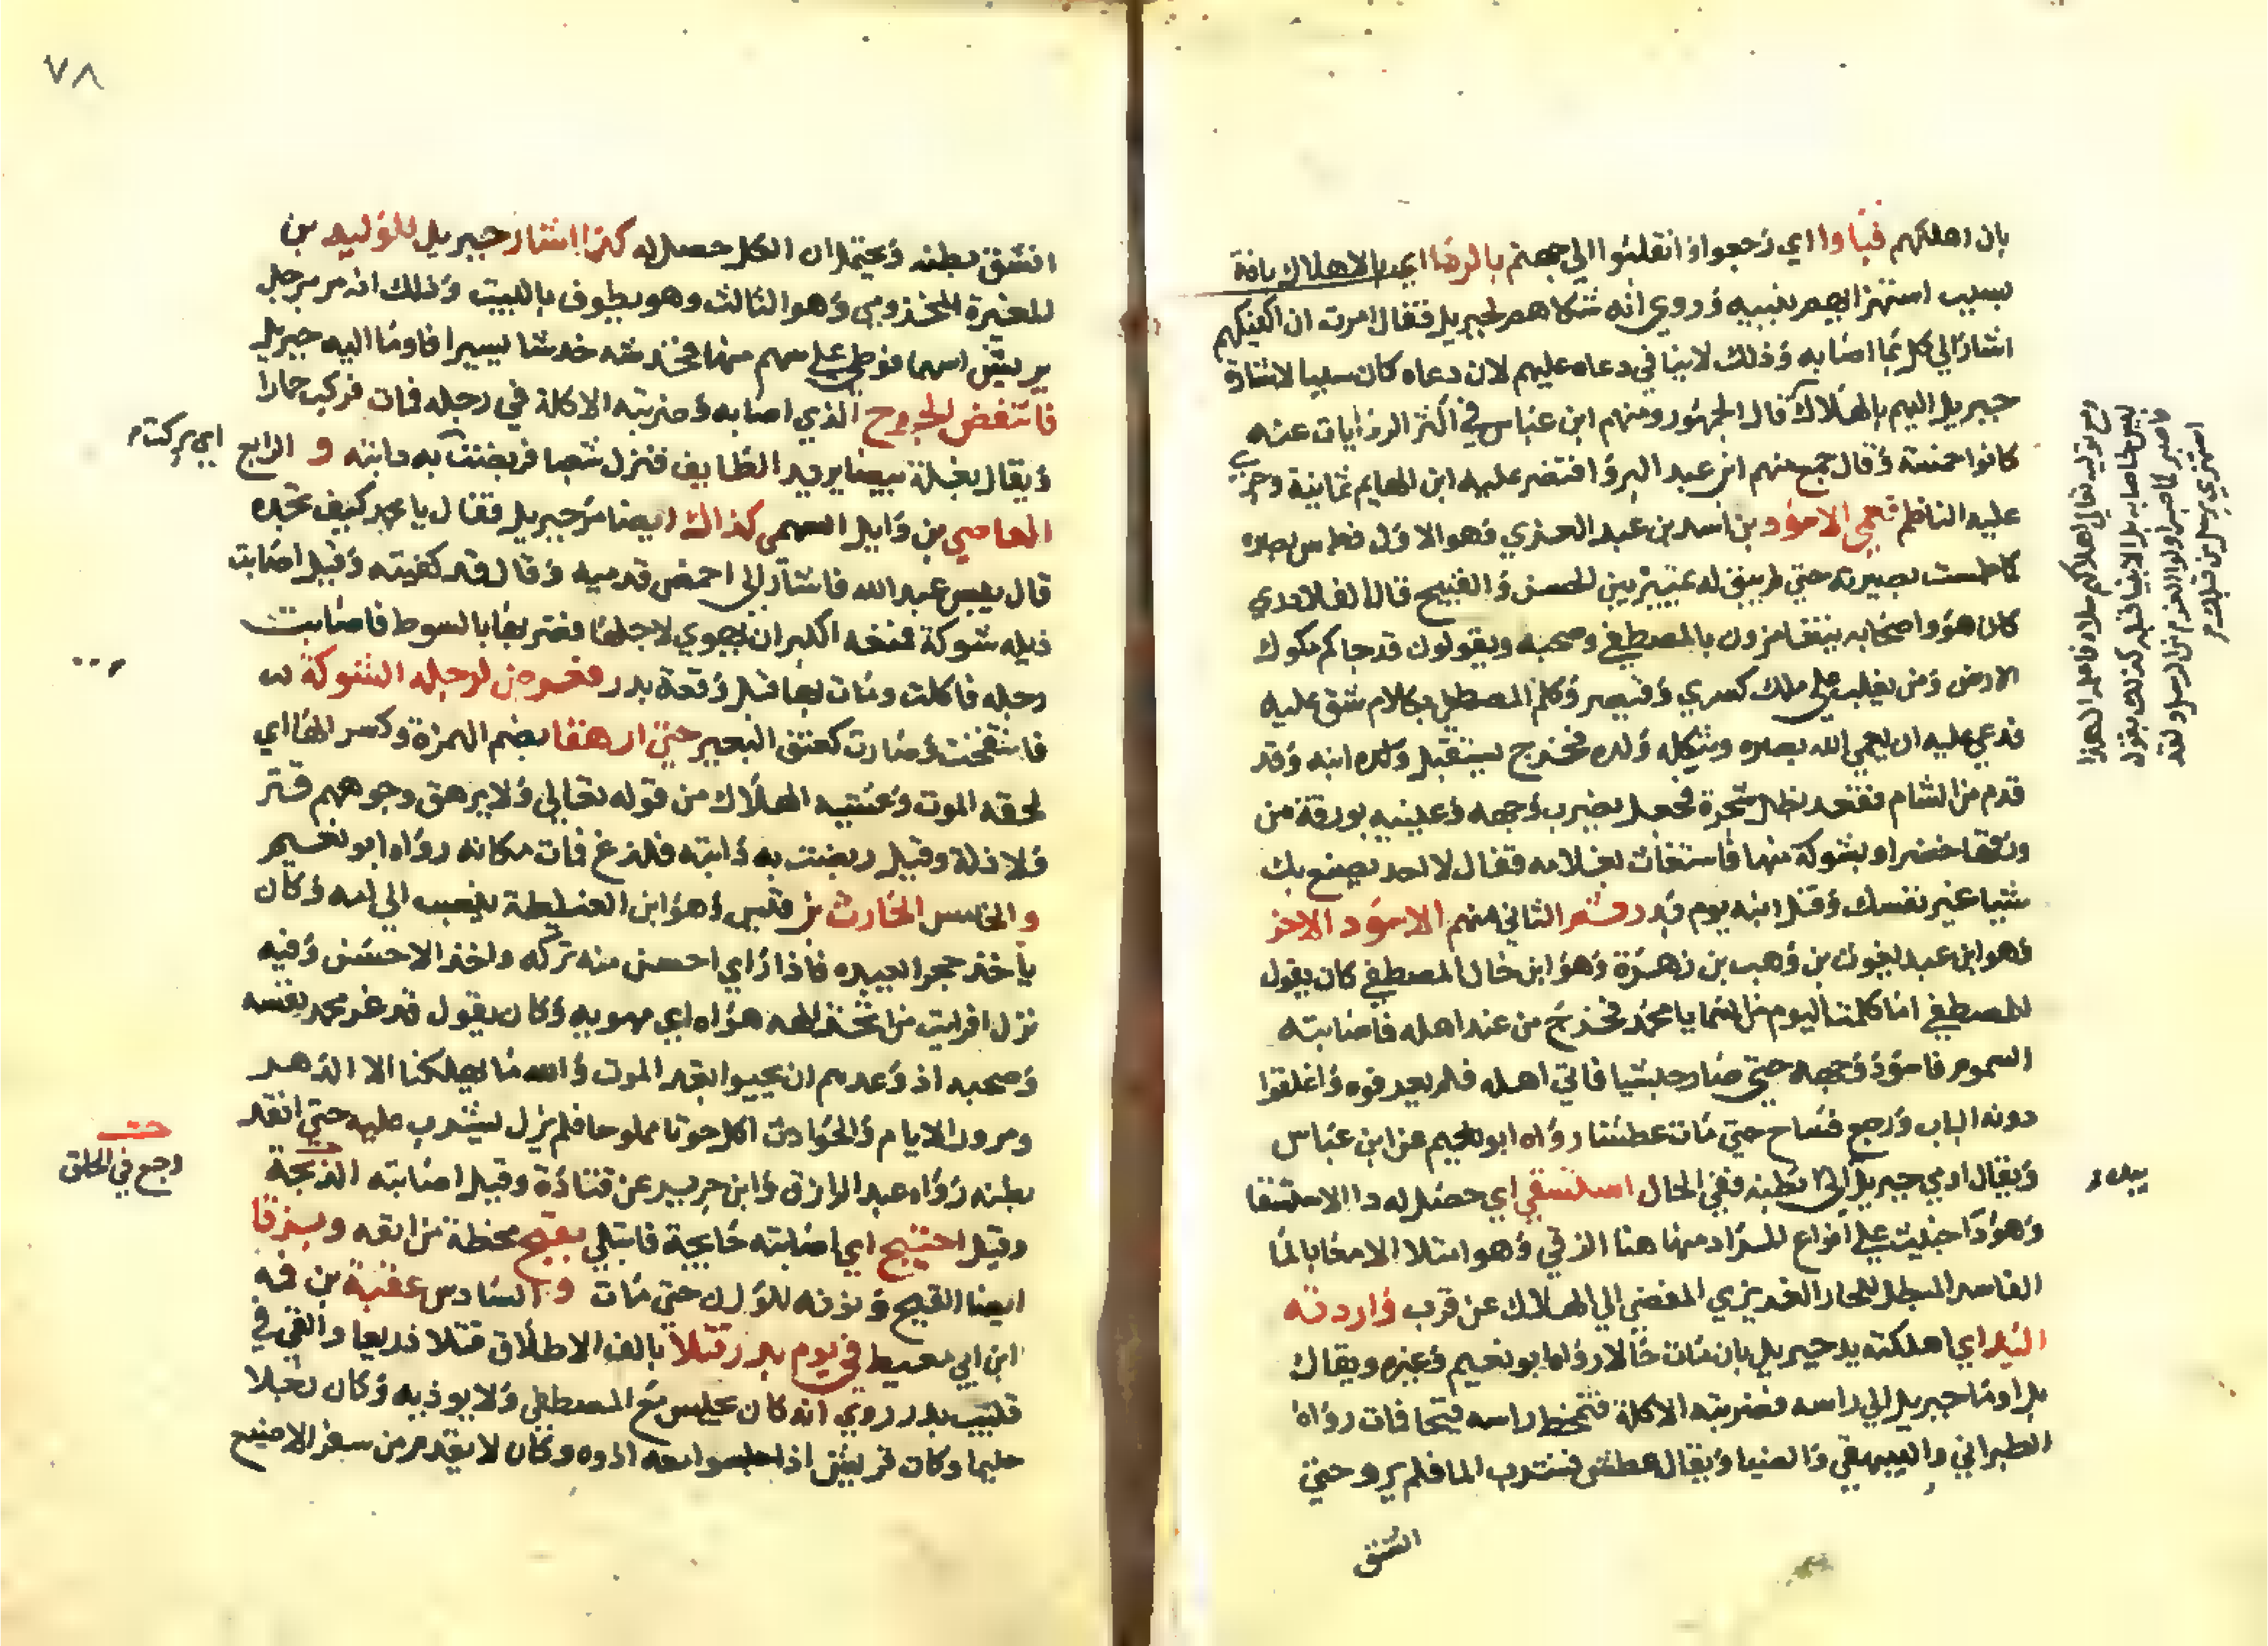 بان اهلكهم فباوا اي رجعوا وانقلبوا الي جهنم بالردا اي بالاهلاك بافة
بسبب استهزايهم بنبيه وروي انه شكاهم لجبريل فقال امرت ان اكفيكهم
اشار الي كل بما اصابه وذلك لا ينافي دعاه عليهم لان دعاه كان سببا لاشارة
جبريل اليهم بالهلاك قال الجمهور ومنهم ابن عباس في اكثر الروايات عنه
كانوا خمسة وقال جمع منهم ابن عبد البر واقتصر عليه ابن الهايم ثمانية وجري
عليه الناظم فعمي الاسود بن اسد بن عبد العزي وهو الاول فطمس بصره
كما طمست بصيرته حتي لم يبق له تمييز بين الحسن والقبيح قال البلاذري
كان هو واصحابه يتغامزون بالمصطفي وصحبه ويقولون قد جاكم ملوك
الارض ومن يغلب علي ملك كسري وقيصر وكلم المصطفي بكلام شق عليه
فدعي عليه ان يعمي الله بصره ويثكله ولده فخرج يستقبل ولده ابنه وقد
قدم من الشام فقعد بظل شجرة فجعل يضرب وجهه وعينيه بورقة من
ورقها خضرا وبشوكة منها فاستغاث بغلامه فقال لا احد يصنع بك
شيا غير نفسك وقتل ابنه يوم بدر ثم الثاني منهم الاسود الاخر
وهو ابن عبد يغوث بن وهب بن زهرة وهو ابن خال المصطفي كان يقول
للمصطفي اما كلمت اليوم من السما يا محمد فخرج من عند اهله فاصابته
السموم فاسود وجهه حتي صار حبشيا فاتي اهله فلم يعرفوه واغلقوا
دونه الباب ورجع فساح حتي مات عطشا رواه ابو نعيم عن ابن عباس
ويقال اومي جبريل الي بطنه ففي الحال استسقي اي حصل له دا الاستسقا
وهو دا خبيث علي انواع المراد منها هنا الزقي وهو امتلا الامعا بالما
الفاسد المبطل للحار الغريزي المفضي الي الهلاك عن قرب واردته
اليد اي اهلكته يد جبريل بان مات حالا رواه ابو نعيم وغيره ويقال
بل اوما جبريل الي راسه فضربته الاكلة فتمخط راسه قيحا فمات رواه
الطبراني والبيهقي والضيا ويقال عطش فشرب الما فلم يرو حتي
انشق
بيده
٧٨
انشق بطنه ويحتمل ان الكل حصل له كذا اشار جبريل للوليد بن
المغيرة المخزومي وهو الثالث وهو يطوف بالبيت وذلك انه مر برجل
يريش اسهما فوطي علي سهم منها فخدشه خدشا يسيرا فاوما اليه جبريل
فانتفض الجروح الذي اصابه وضربته الاكلة في رجله فمات فركب حمارا
ويقال بغلة بيضا يريد الطايف فنزل شعبا فربضت به دابته و الرابع
اي بركت
العاصي بن وايل السهمي كذاك ايضا مر جبريل فقال يا محمد كيف تجده
قال بيس عبد الله فاشار الي اخمص قدميه وقال قد كفيته وقيل اصابت
ذيله شوكة فمنعه الكبر ان يهوي لاجلها فضربها بالسوط فاصابت
رجله فاكلت ومات بها قبل وقعة بدر فتعرض لرجله الشوكة
فانتفخت وصارت كعنق البعير حتي ارهقا بضم الهمزة وكسر الها اي
لحقه الموت وغشيه الهلاك من قوله تعالي ولا يرهق وجوههم قتر
ولا ذلة وقيل ربضت به دابته فلدغ فمات مكانه رواه ابو نعيم
والخامس الحارث بن قيس وهو ابن الغيطلة ينسب الي امه وكان
ياخذ حجرا يعبده فاذا راي احسن منه تركه واخذ الاحسن وفيه
نزل افرايت من اتخذ الهه هواه اي مهويه وكان يقول قد غر محمد نفسه
وصحبه اذ وعدهم ان يحيوا بعد الموت والله ما يهلكنا الا الدهر
ومرور الايام والحوادث اكل حوتا مملوحا فلم يزل يشرب عليه حتي انقد
بطنه رواه عبد الرازق وابن جرير عن قتادة وقيل اصابته الذبحة
وجع في الحلق
وقيل اجتيح اي اصابته جايحة فابتلي بقيح مخطه من انفه وبزقا
ايضا القيح ونزفه للؤل حتي مات و السادس عقبة بن فيه
ابن ابي معيط في يوم بدر قتلا بالف الاطلاق قتلا ذريعا والقي في
قليب بدر روي انه كان يجلس مع المصطفي ولا يوذيه وكان رجلا
حليما وكان قريش اذا جلسوا معه اذوه وكان لا يقدم من سفر الا صنع